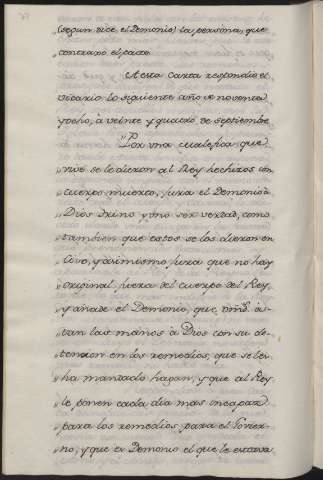 (segun dice el Demonio) la persona, que
contraxo el pacto
A esta carta respondio el
vicario lo siguiente año de noventa
y ocho, à veinte y quatro de septiembre
"Por una cualefia que
"vive se le dieron al Rey hechizos con
"cuerpo muerto, jura el Demonio à
"Dios trino y uno ser verdad, como
"tambien que estos se los dieron en
"Clvo, y asimismo jura que no hay
"original fuera del cuerpo del Rey,
"y añade el Demonio, que, a-
"tan las manos à Dios con su de-
"tencion en los remedios, que se les
"ha mandado hagan, y que al Rey
"le ponen cada dia mas incapaz
"para los remedios, para el Govier-
"no, y que es Demonio el que le estava